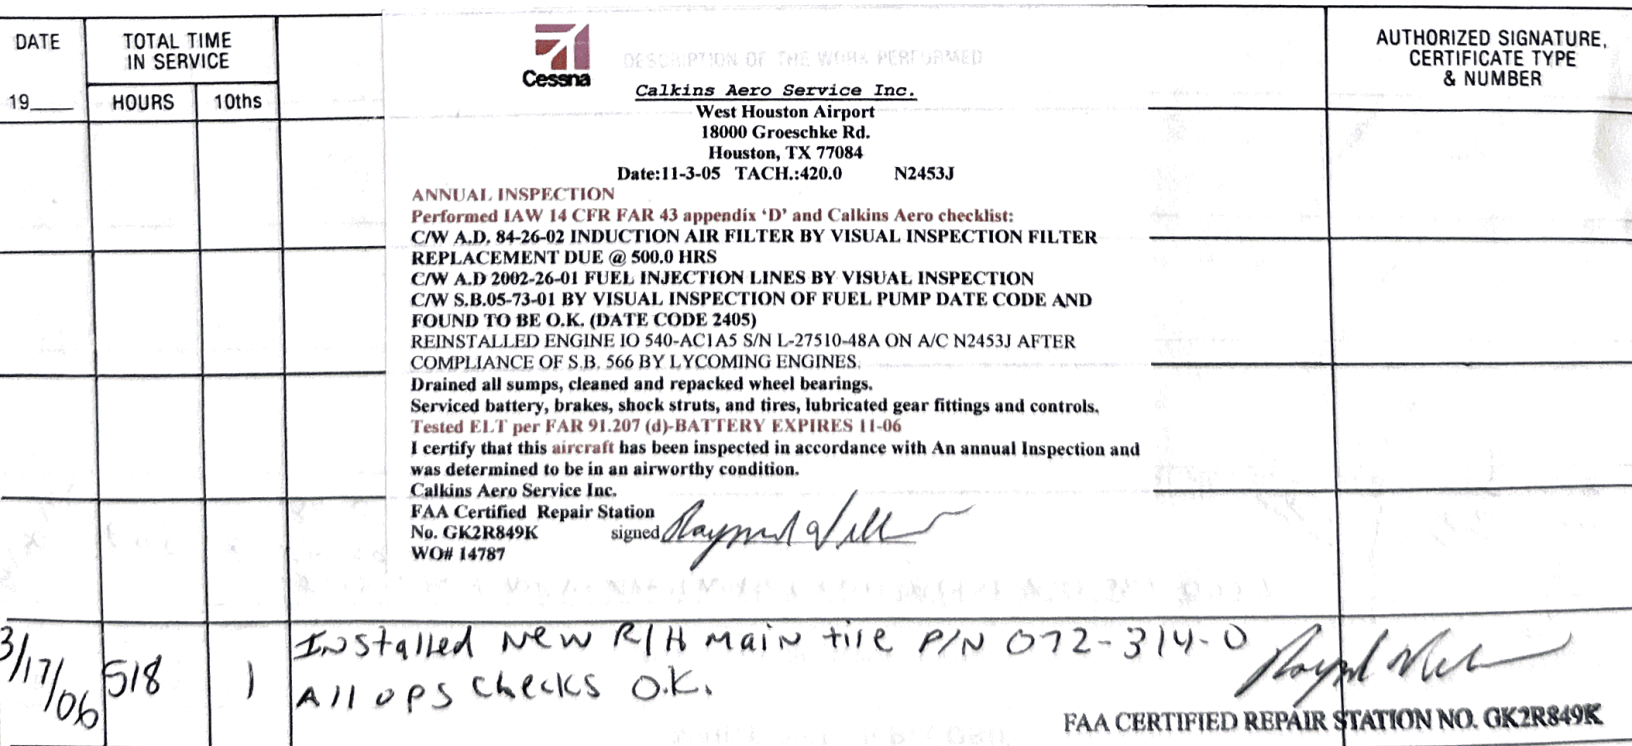 DATE
TOTAL TIME
IN SERVICE
19
HOURS
10ths
Cessna
DESCRIPTION OF THE WORK PERFORMED
AUTHORIZED SIGNATURE,
CERTIFICATE TYPE
& NUMBER
Calkins Aero Service Inc.
West Houston Airport
18000 Groeschke Rd.
Houston, TX 77084
Date:11-3-05 TACH.:420.0 N2453J
ANNUAL INSPECTION
Performed IAW 14 CFR FAR 43 appendix ‘D’ and Calkins Aero checklist:
C/W A.D. 84-26-02 INDUCTION AIR FILTER BY VISUAL INSPECTION FILTER
REPLACEMENT DUE @ 500.0 HRS
C/W A.D 2002-26-01 FUEL INJECTION LINES BY VISUAL INSPECTION
C/W S.B.05-73-01 BY VISUAL INSPECTION OF FUEL PUMP DATE CODE AND
FOUND TO BE O.K. (DATE CODE 2405)
REINSTALLED ENGINE IO 540-AC1A5 S/N L-27510-48A ON A/C N2453J AFTER
COMPLIANCE OF S.B. 566 BY LYCOMING ENGINES.
Drained all sumps, cleaned and repacked wheel bearings.
Serviced battery, brakes, shock struts, and tires, lubricated gear fittings and controls.
Tested ELT per FAR 91.207 (d)-BATTERY EXPIRES 11-06
I certify that this aircraft has been inspected in accordance with An annual Inspection and
was determined to be in an airworthy condition.
Calkins Aero Service Inc.
FAA Certified Repair Station
No. GK2R849K signed
WO# 14787
3/17/06 518 1 Installed New R/H main tire P/N 072-314-0
All ops checks O.K.
FAA CERTIFIED REPAIR STATION NO. GK2R849K